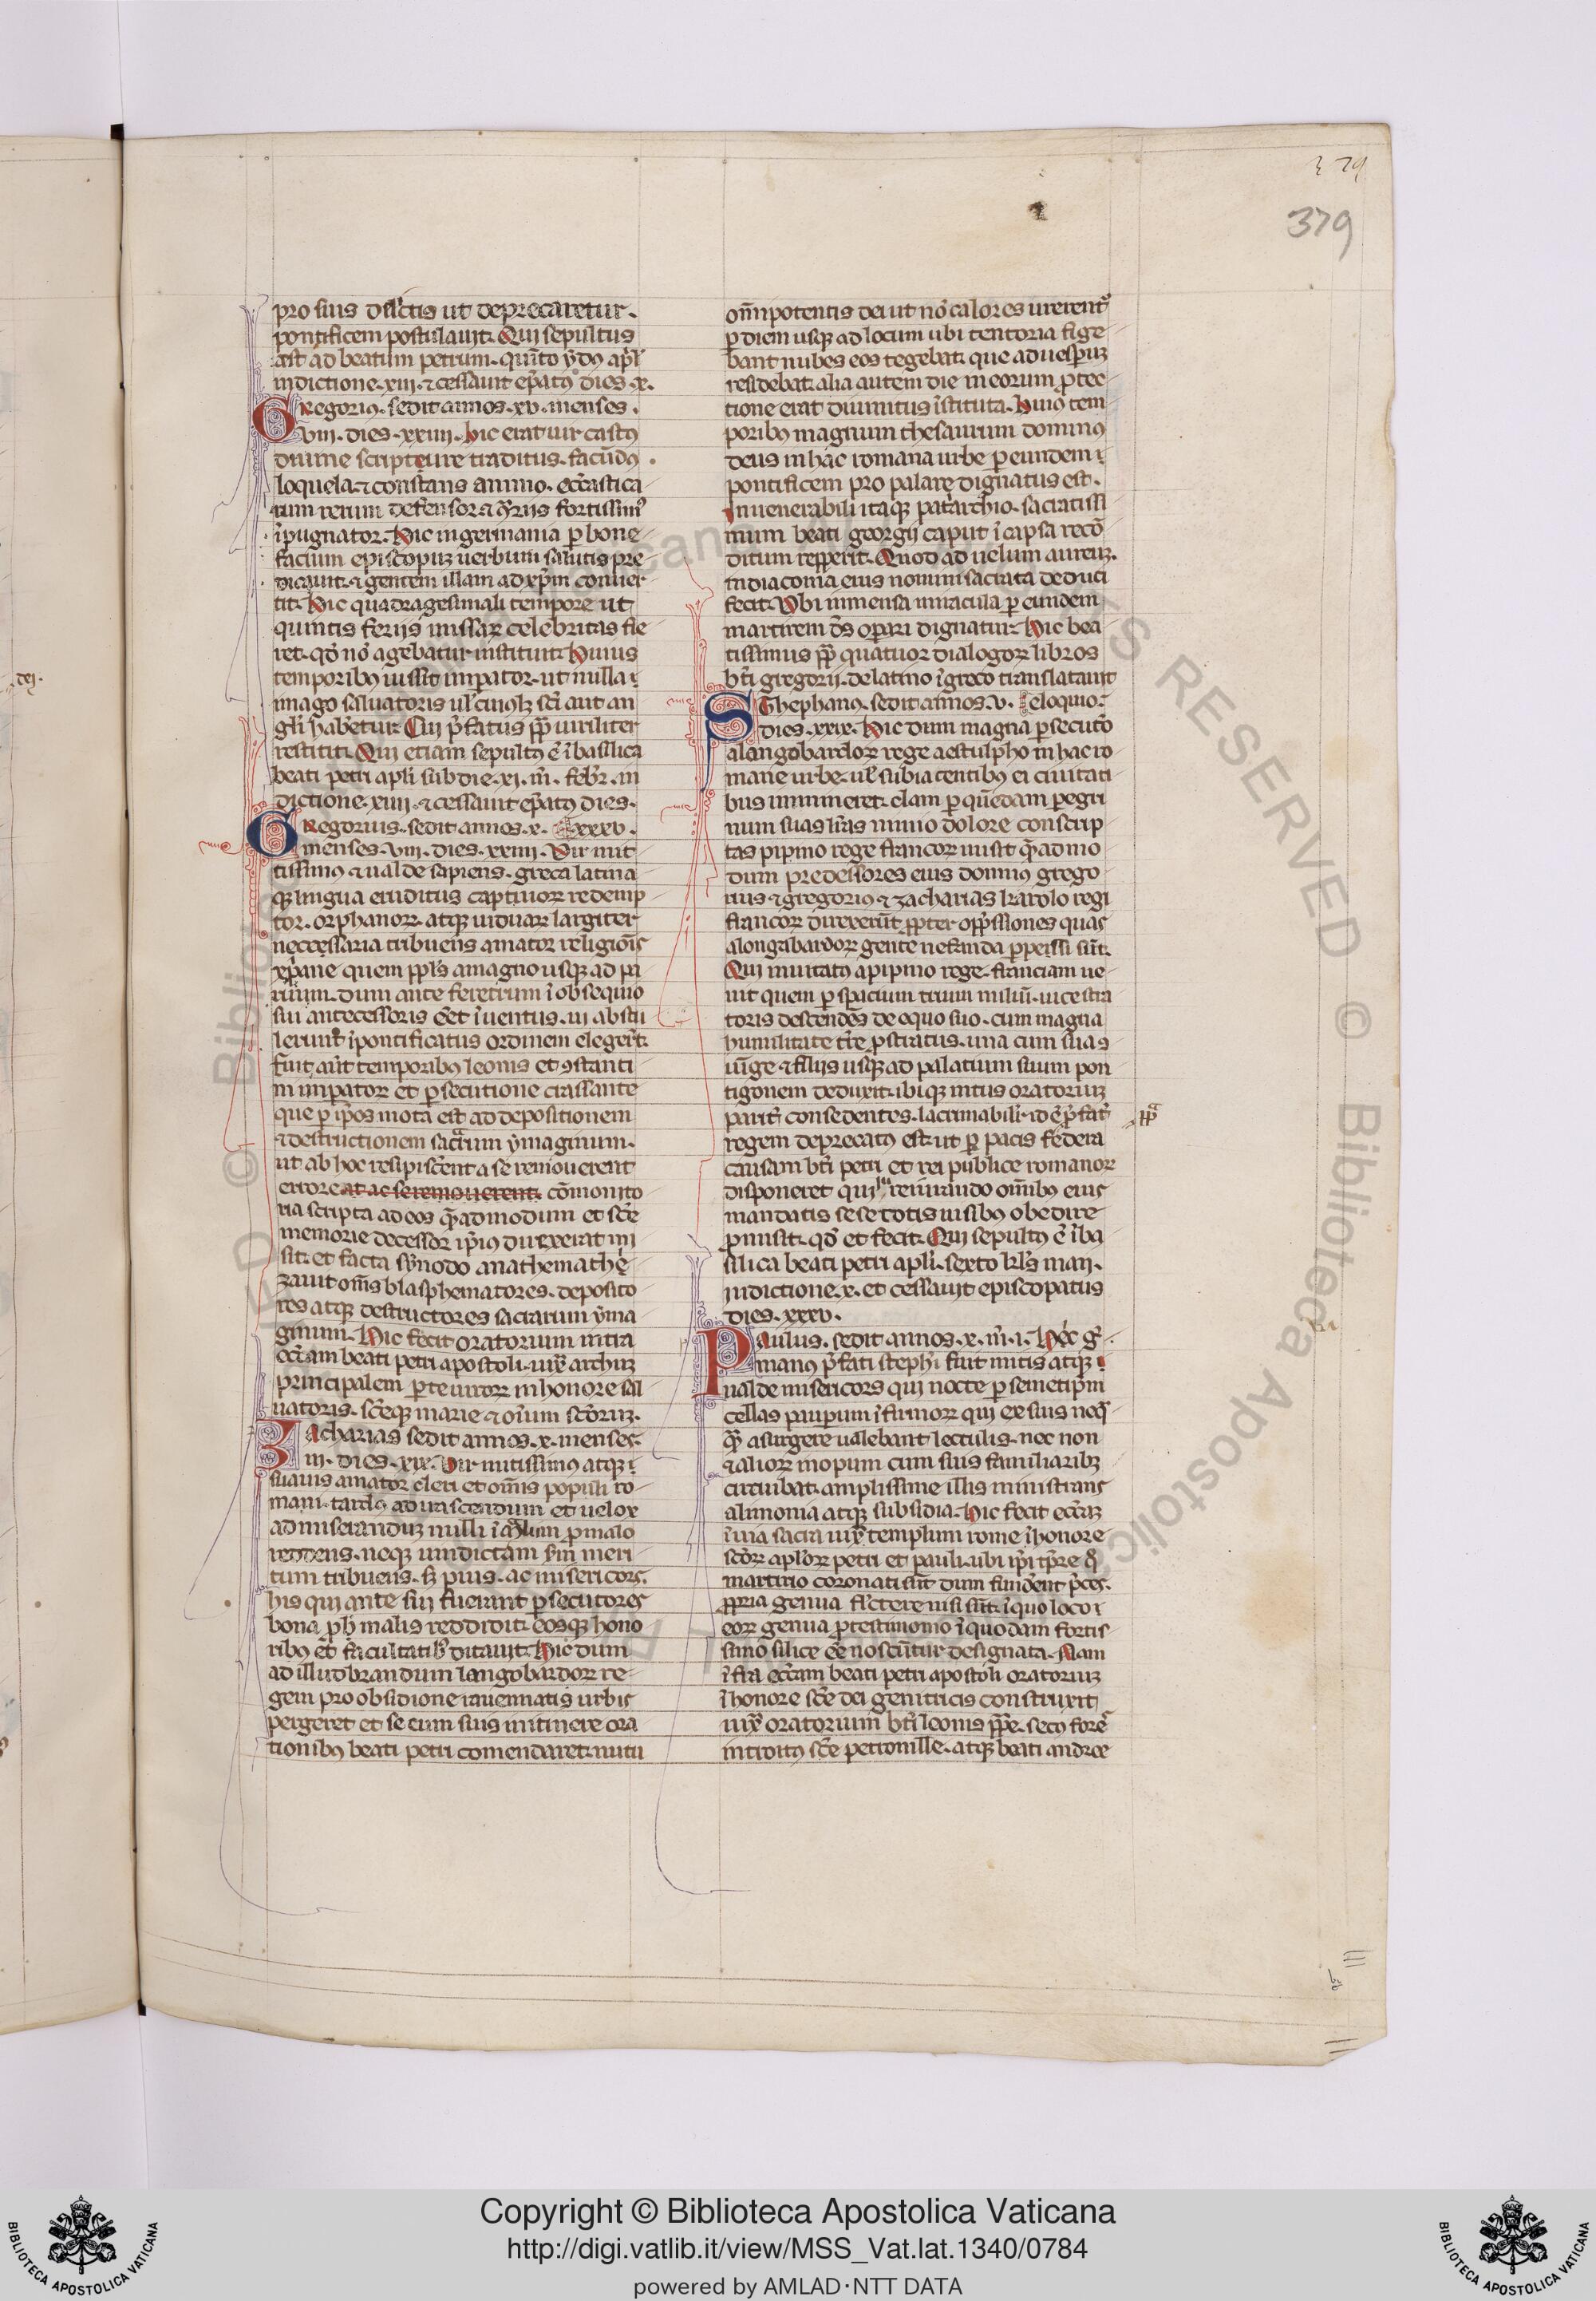 3 79
379
pro suis delictis ut deprecaretur.
pontificem postulauit. Qui sepultus
est ad beatum petrum. quīto ydꝰ apͥl̓
indictione. xiii. ⁊ cessauit ep̄atꝰ dies. x.
Gregoriꝰ. sedit annos. xv. menses.
viii. dies. xxiiii. hic erat uir castꝰ
diuine scripture traditus. facūdꝰ.
loquela. ⁊ constans animo. ecc̄astica
rum rerum defensor. ⁊ ꝯ̄riis fortissimꝰ
īpugnator. Hic in germania ꝑ bone
facium episcopuꝫ uerbum salutis pre
dicauit. ⁊ gentem illam ad xp̄m conuer
tit. Hic quadragesimali tempore ut
quintis feriis missaꝝ celebritas fie
ret. qđ nō agebatur instituit. Huius
temporibꝰ iussit imꝑator. ut nulla
imago saluatoris ul̓ cuiusqꝫ sc̄i aut an
gli habetur. Cui p̄fatus pp̄ uiriliter
restitit. Qui etiam sepultꝰ ē ī basilica
beati petri apl̓i sub die. xi. m̄. febr̓. in
dictione. xiiii. ⁊ cessauit ep̄atꝰ dies.
Gregorius. sedit annos. x. xxxv.
menses. viii. dies. xxiiii. Vir mit
tissimꝰ ⁊ ualde sapiens. greca latina
qꝫ lingua eruditus captiuoꝝ redemp
tor. orphanoꝝ. atqꝫ uiduaꝝ largiter
neccessaria tribuens amator religiōis
xp̄iane quem ppl̓s a magno usqꝫ ad pa
ruum. dum ante feretrum ī obsequio
sui antecessoris eēt īuentus. ui abstu
lerunt ī pontificatus ordinem elegerūt.
fuit aūt temporibus leonis et ꝯstanti
ni imꝑatoꝝ et ꝑsecutione crassante
que ꝑ ip̄os mota est ad depositionem
⁊ destructionem sacrarum ymaginum.
ut ab hoc resipiscēnt a se remouerent
errore at ac se remouerent. cōmonito
ria scripta ad eos q̄admodum et sc̄e
memorie decessor ip̄ius direxerat mi
sit. et facta synodo anathemathę
zauit om̄s blasphematores. deposito
res atqꝫ destructores sacrarum yma
ginum. Hic fecit oratorium intra
ecc̄am beati petri apostoli. iuxͣ archuꝫ
principalem ꝑte uiroꝝ in honore sal
uatoris. sc̄eqꝫ marie ⁊ om̄ium sc̄oruꝫ.
Zacharias sedit annos. x. menses.
iii. dies. xix. Vir mitissimꝰ atqꝫ
suauis amator cleri et om̄is populi ro
mani. tardꝰ ad irascendum et uelox
ad miseranduꝫ nulli malum ꝓ malo
reddens. neqꝫ uindictam sm̄ meri
tum tribuens. sꝫ pius. ac misericors.
his qui ante sui fuerant ꝑsecutores
bona ꝓ malis reddidit. eosqꝫ hono
ribꝰ et facultatibꝰ ditauit. Hic dum
ad illudbrandum langobardoꝝ re
gem pro obsidione rauennatis urbis
pergeret et se cum suis in itinere ora
tionibꝰ beati petri comendaret. nutu
om̄ipotentis dei ut nō calores urerentꝰ
ꝑ diem usqꝫ ad locum ubi tentoria fige
bant nubes eos tegebat. que ad uesꝑuꝫ
residebat. alia autem die in eorum ꝓtec
tione erat diuinitus īstituta. Huiꝰ tem
poribꝰ magnum thesaurum dominꝰ
deus in hac romana urbe ꝑ eundem
pontificem pro palare dignatus est.
In uenerabili itaqꝫ patͥarchio. sacratissi
mum beati georgij caput ī capsa recō
ditum repperit. Quod ad uelum aureuꝫ.
in diaconia eius nomini sacrata deduci
fecit. Vbi inmensa miracula ꝑ eundem
martirem dꝰs oꝑari dignatur. Hic bea
tissimus pp̄ quatuor dialogoꝝ libros
bt̓i gregorij. de latino ī greco translatauit
Sthephanꝰ. sedit annos. v. eloquio.
dies. xxix. Hic dum magna ꝑsecutō
a langobardoꝝ rege aestulpho in hac ro
mane urbe. ul̓ subiacentibꝰ ei ciuitati
bus immineret. clam ꝑ quēdam ꝑegri
num suas lr̄as nimio dolore conscrip
tas pipino rege francoꝝ misit q̄admo
dum predessores eius domnus grego
rius ⁊ gregoriꝰ ⁊ zacharias karolo regi
francoꝝ direxerūt. ꝓpter opp̄ssiones quas
a longabardoꝝ gente nefanda ꝑpessi sūt.
Qui inuitatꝰ a pipino rege. franciam ue
nit quem ꝑ spacium trium miliū. uice stra
toris descendēs de equo suo. cum magna
humilitate tr̄e ꝓstratus. una cum suas
iuge ⁊ filiis usqꝫ ad palatium suum pon
tigonem deduxit. ibiqꝫ intus oratoriuꝫ
parit̓ consedentes. lacrimabilꝰ. id ē p̄fatꝰ
regem deprecatꝰ est. ut ꝑ pacis federa
causam bt̓i petri et rei publice romanoꝝ
disponeret qui iurando om̄ibꝰ eius
mandatis sese totis nisibꝰ obedire
ꝓmisit. qđ et fecit. Qui sepultꝰ ē ī ba
silica beati petri apl̓i. sexto kl̓s maij.
indictione. x. et cessauit episcopatus
dies. xxxv.
Paulus. sedit annos. x. m̄. i. Hic ḡ
manꝰ p̄fati stephi fuit mitis atqꝫ
ualde misericors qui nocte ꝑ semetip̄m
cellas pauꝑum īfirmoꝝ qui ex suis neq̄
q̄ assurgere ualebant lectulis. nec non
⁊ alioꝝ inopum cum suis familiaribꝫ
circuibat. amplissime illis ministrans
alimonia atqꝫ subsidia. Hic fecit ecc̄aꝫ
ī uia sacra iuxͣ templum rome ī honore
sc̄oꝝ apl̓oꝝ petri et pauli. ubi ip̄i tp̄re q̄
martirio coronati sūt dum funderent p̄ces.
ꝓpria genua flectere uisi sūt. ī quo loco
eoꝝ genua ꝓ testimonio ī quodam fortis
simo silice eē noscūtur designata. Nam
īfra ecc̄am beati petri apostoli oratoriuꝫ
ī honore sc̄e dei genitricis construxit
iuxͣ oratorium bt̓i leonis pp̄e. secꝰ forē
introitꝰ sc̄e petronille. atqꝫ beati andree
dei.
pp̄ͣ
BIBLIOTECA APOSTOLICA VATICANA
Copyright © Biblioteca Apostolica Vaticana
http://digi.vatlib.it/view/MSS_Vat.lat.1340/0784
powered by AMLAD·NTT DATA
BIBLIOTECA APOSTOLICA VATICANA